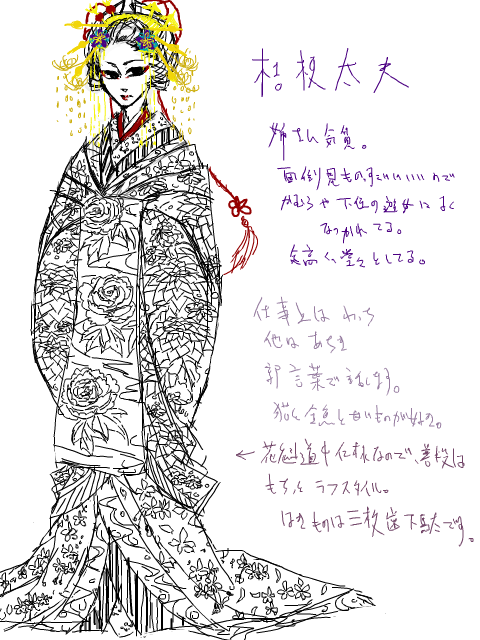 桔梗太夫
姉さん気質。
面倒見ものすごいいいので
かむろや下位の遊女によく
なつかれてる。
気高く、堂々としてる。
仕事上は わっち
他は あちき
郭言葉で話します。
猫と金魚と甘いものが好き。
← 花魁道中仕様なので、普段は
もちっとラフスタイル。
はきものは三枚歯下駄です。